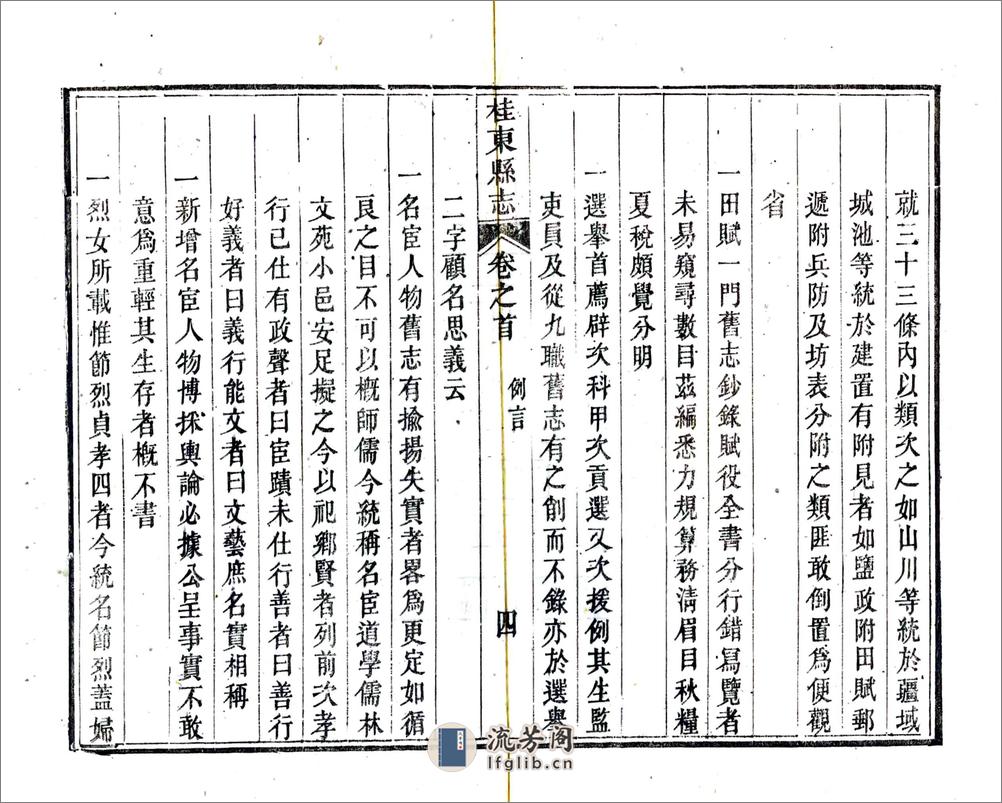 就三十三條內以類次之如山川等統於疆域
城池等統於建置有附見者如鹽政附田賦郵
遞附兵防及坊表分附之類匪敢倒置爲便觀
省
一田賦一門舊志鈔錄賦役全書分行錯寫覽者
未易窺尋數目茲編悉力規算務淸眉目秋糧
夏稅頗覺分明
一選舉首薦辟次科甲次貢選又次援例其生監
吏員及從九職舊志有之創而不錄亦於選舉
桂東縣志
卷之首
例言
四
二字顧名思義云
一名宦人物舊志有揄揚失實者畧爲更定如循
良之目不可以槪師儒今統稱名宦道學儒林
文苑小邑安足擬之今以祀鄉賢者列前次孝
行已仕有政聲者曰宦蹟未仕行善者曰善行
好義者曰義行能文者曰文藝庶名實相稱
一新增名宦人物博採輿論必據公呈事實不敢
意爲重輕其生存者槪不書
一烈女所載惟節烈貞孝四者今統名節烈蓋婦
流芳阁
lfglib.cn